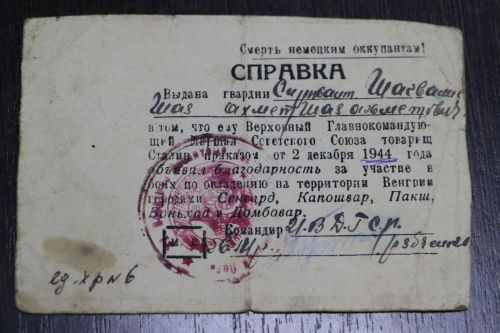 Смерть немецким оккупантам!
СПРАВКА
Выдана гвардии Сержант
Шах Ахмет Шах Ахметович
в том, что ему Верховный Главнокомандую-
щий Маршал Советского Союза товарищ
Сталин приказом от 2 декабря 1944 года
объявил благодарность за участие в
боях по овладению на территории Венгрии
городами Сексард, Капошвар, Пакш,
Боньхад и Домбовар.
Командир
М
ед.хр№6